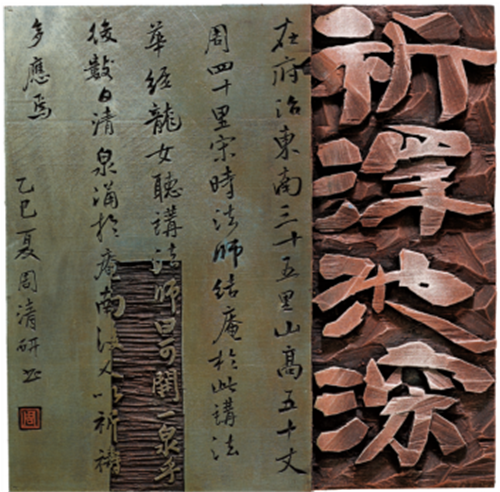 祈澤池深
在府治東南三十五里山高五十丈
周四十里宋時法師結庵於此講法
華經龍女聽講法師曰可開一泉乎
後數日清泉涌於庵南法人以祈禱
多應焉
乙巳夏周清研書
周